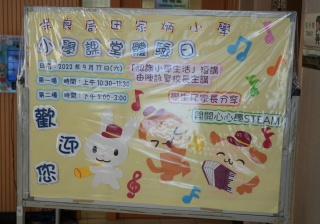 榮良居田家炳小學
小學課堂體驗日
日期：2022年9月17日(六)
第一場 時間：上午10:30-11:30
第二場 時間：下午2:00-3:00
小學生活」
校長主講
學生及家長分享
開開心心學STEAM
歡迎您